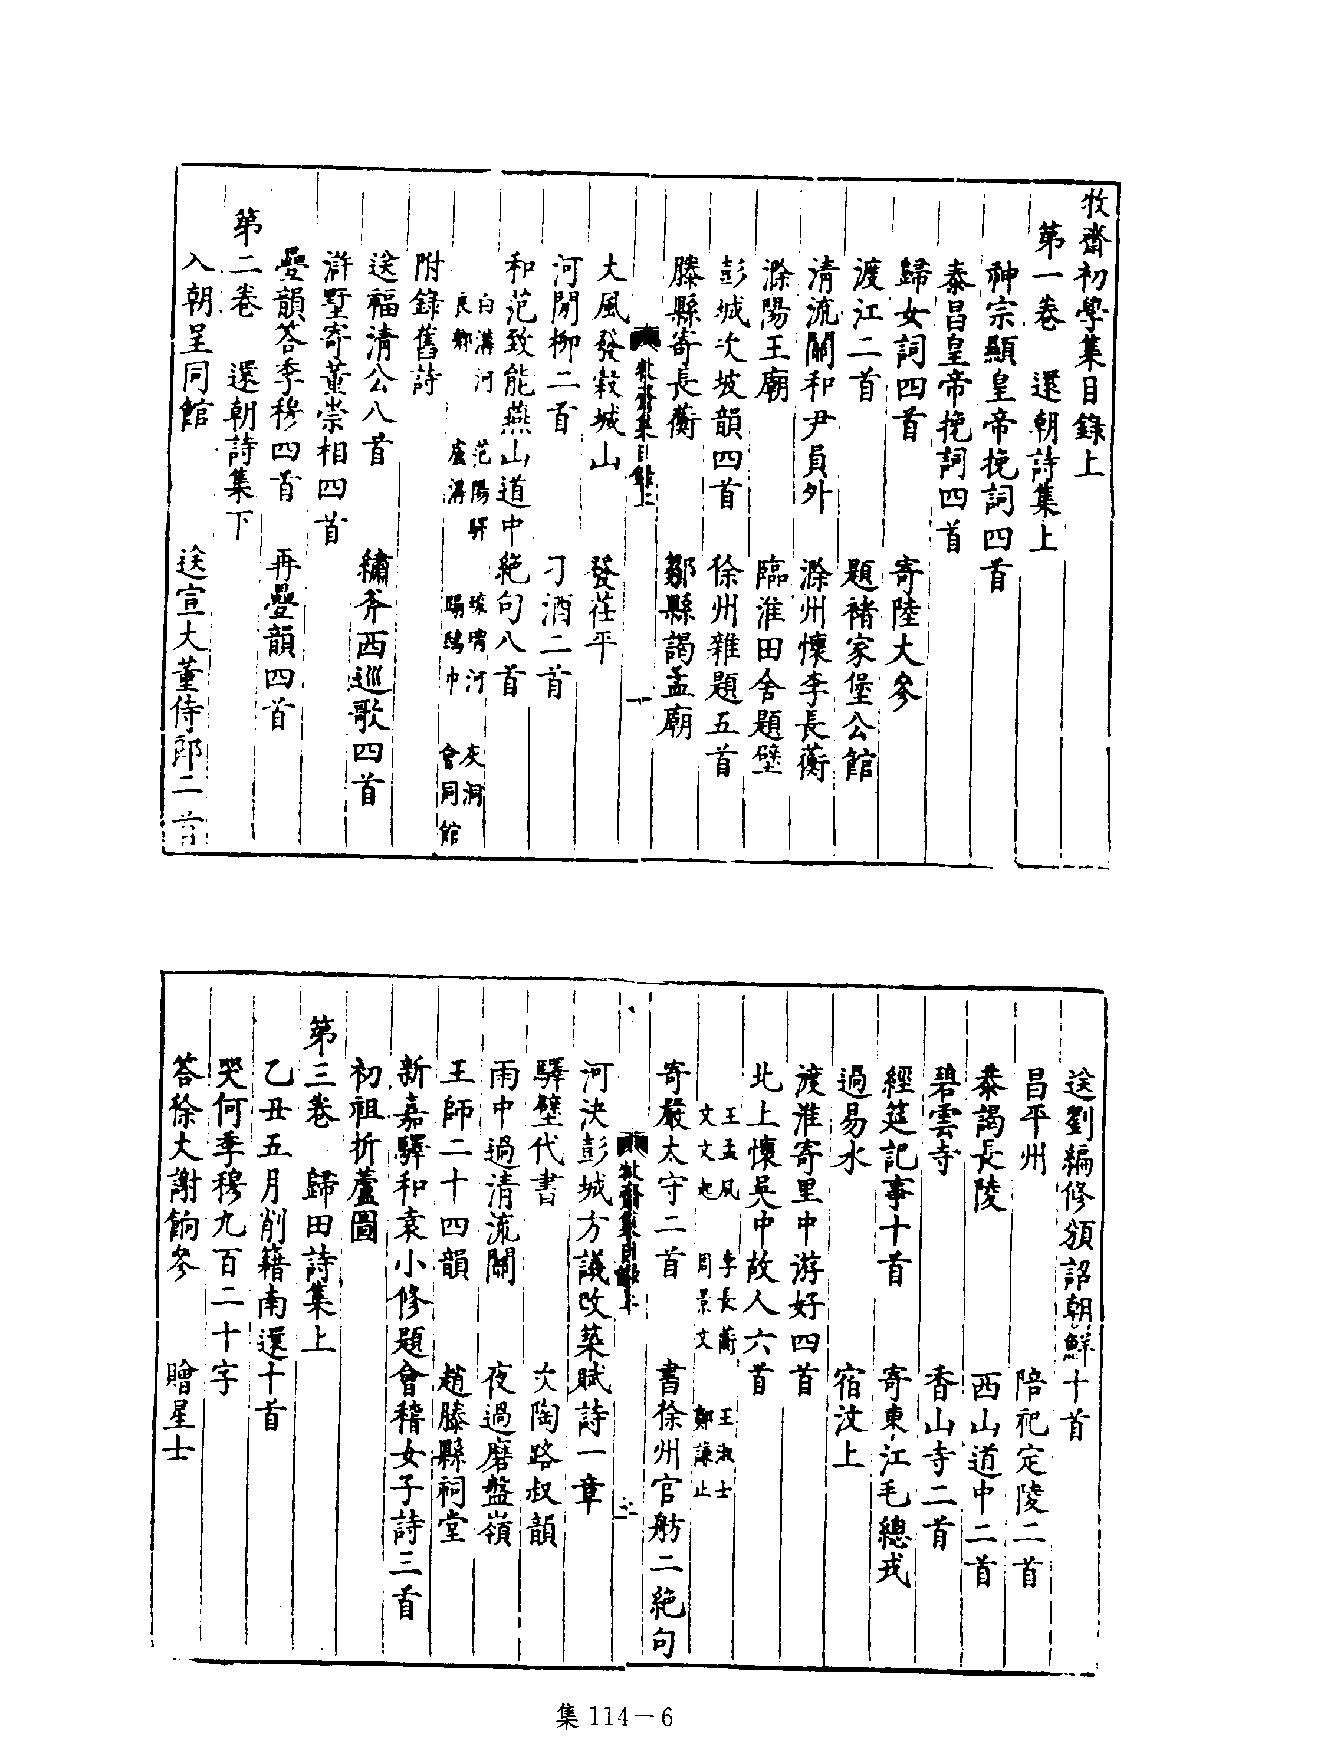 牧齋初學集目錄上
第一卷　還朝詩集上
神宗顯皇帝挽詞四首
泰昌皇帝挽詞四首
歸女詞四首　寄陸大參
渡江二首　題褚家堡公館
清流關和尹員外　滁州懷李長蘅
滁陽王廟　臨淮田舍題壁
彭城次坡韻四首　徐州雜題五首
滕縣寄長蘅　鄒縣謁孟廟
牧齋集目錄上　一
大風發穀城山　發茌平
河間柳二首　刁酒二首
和范致能燕山道中絕句八首
白溝河　范陽驛　琉璃河　灰洞
良鄉　盧溝　賜鵝巾　會同館
附錄舊詩
送福清公八首　繡斧西巡歌四首
滸墅寄董崇相四首
疊韻荅季穆四首　再疊韻四首
第二卷　還朝詩集下
入朝呈同館　送宣大董侍郎二首
送劉編修頒詔朝鮮十首
昌平州　陪祀定陵二首
恭謁長陵　西山道中二首
碧雲寺　香山寺二首
經筵記事十首　寄東江毛總戎
過易水　宿汶上
渡淮寄里中游好四首
北上懷吳中故人六首
王孟夙　李長蘅　王淑士
文文起　周景文　鄭謙止
寄嚴太守二首　書徐州官舫二絕句
牧齋集目錄上　二
河決彭城方議改築賦詩一章
驛壁代書　次陶路叔韻
雨中過清流關　夜過磨盤嶺
王師二十四韻　趙滕縣祠堂
新嘉驛和袁小修題會稽女子詩三首
初祖折蘆圖
第三卷　歸田詩集上
乙丑五月削籍南還十首
哭何季穆九百二十字
荅徐大謝餉參　贈星士
集 114－6